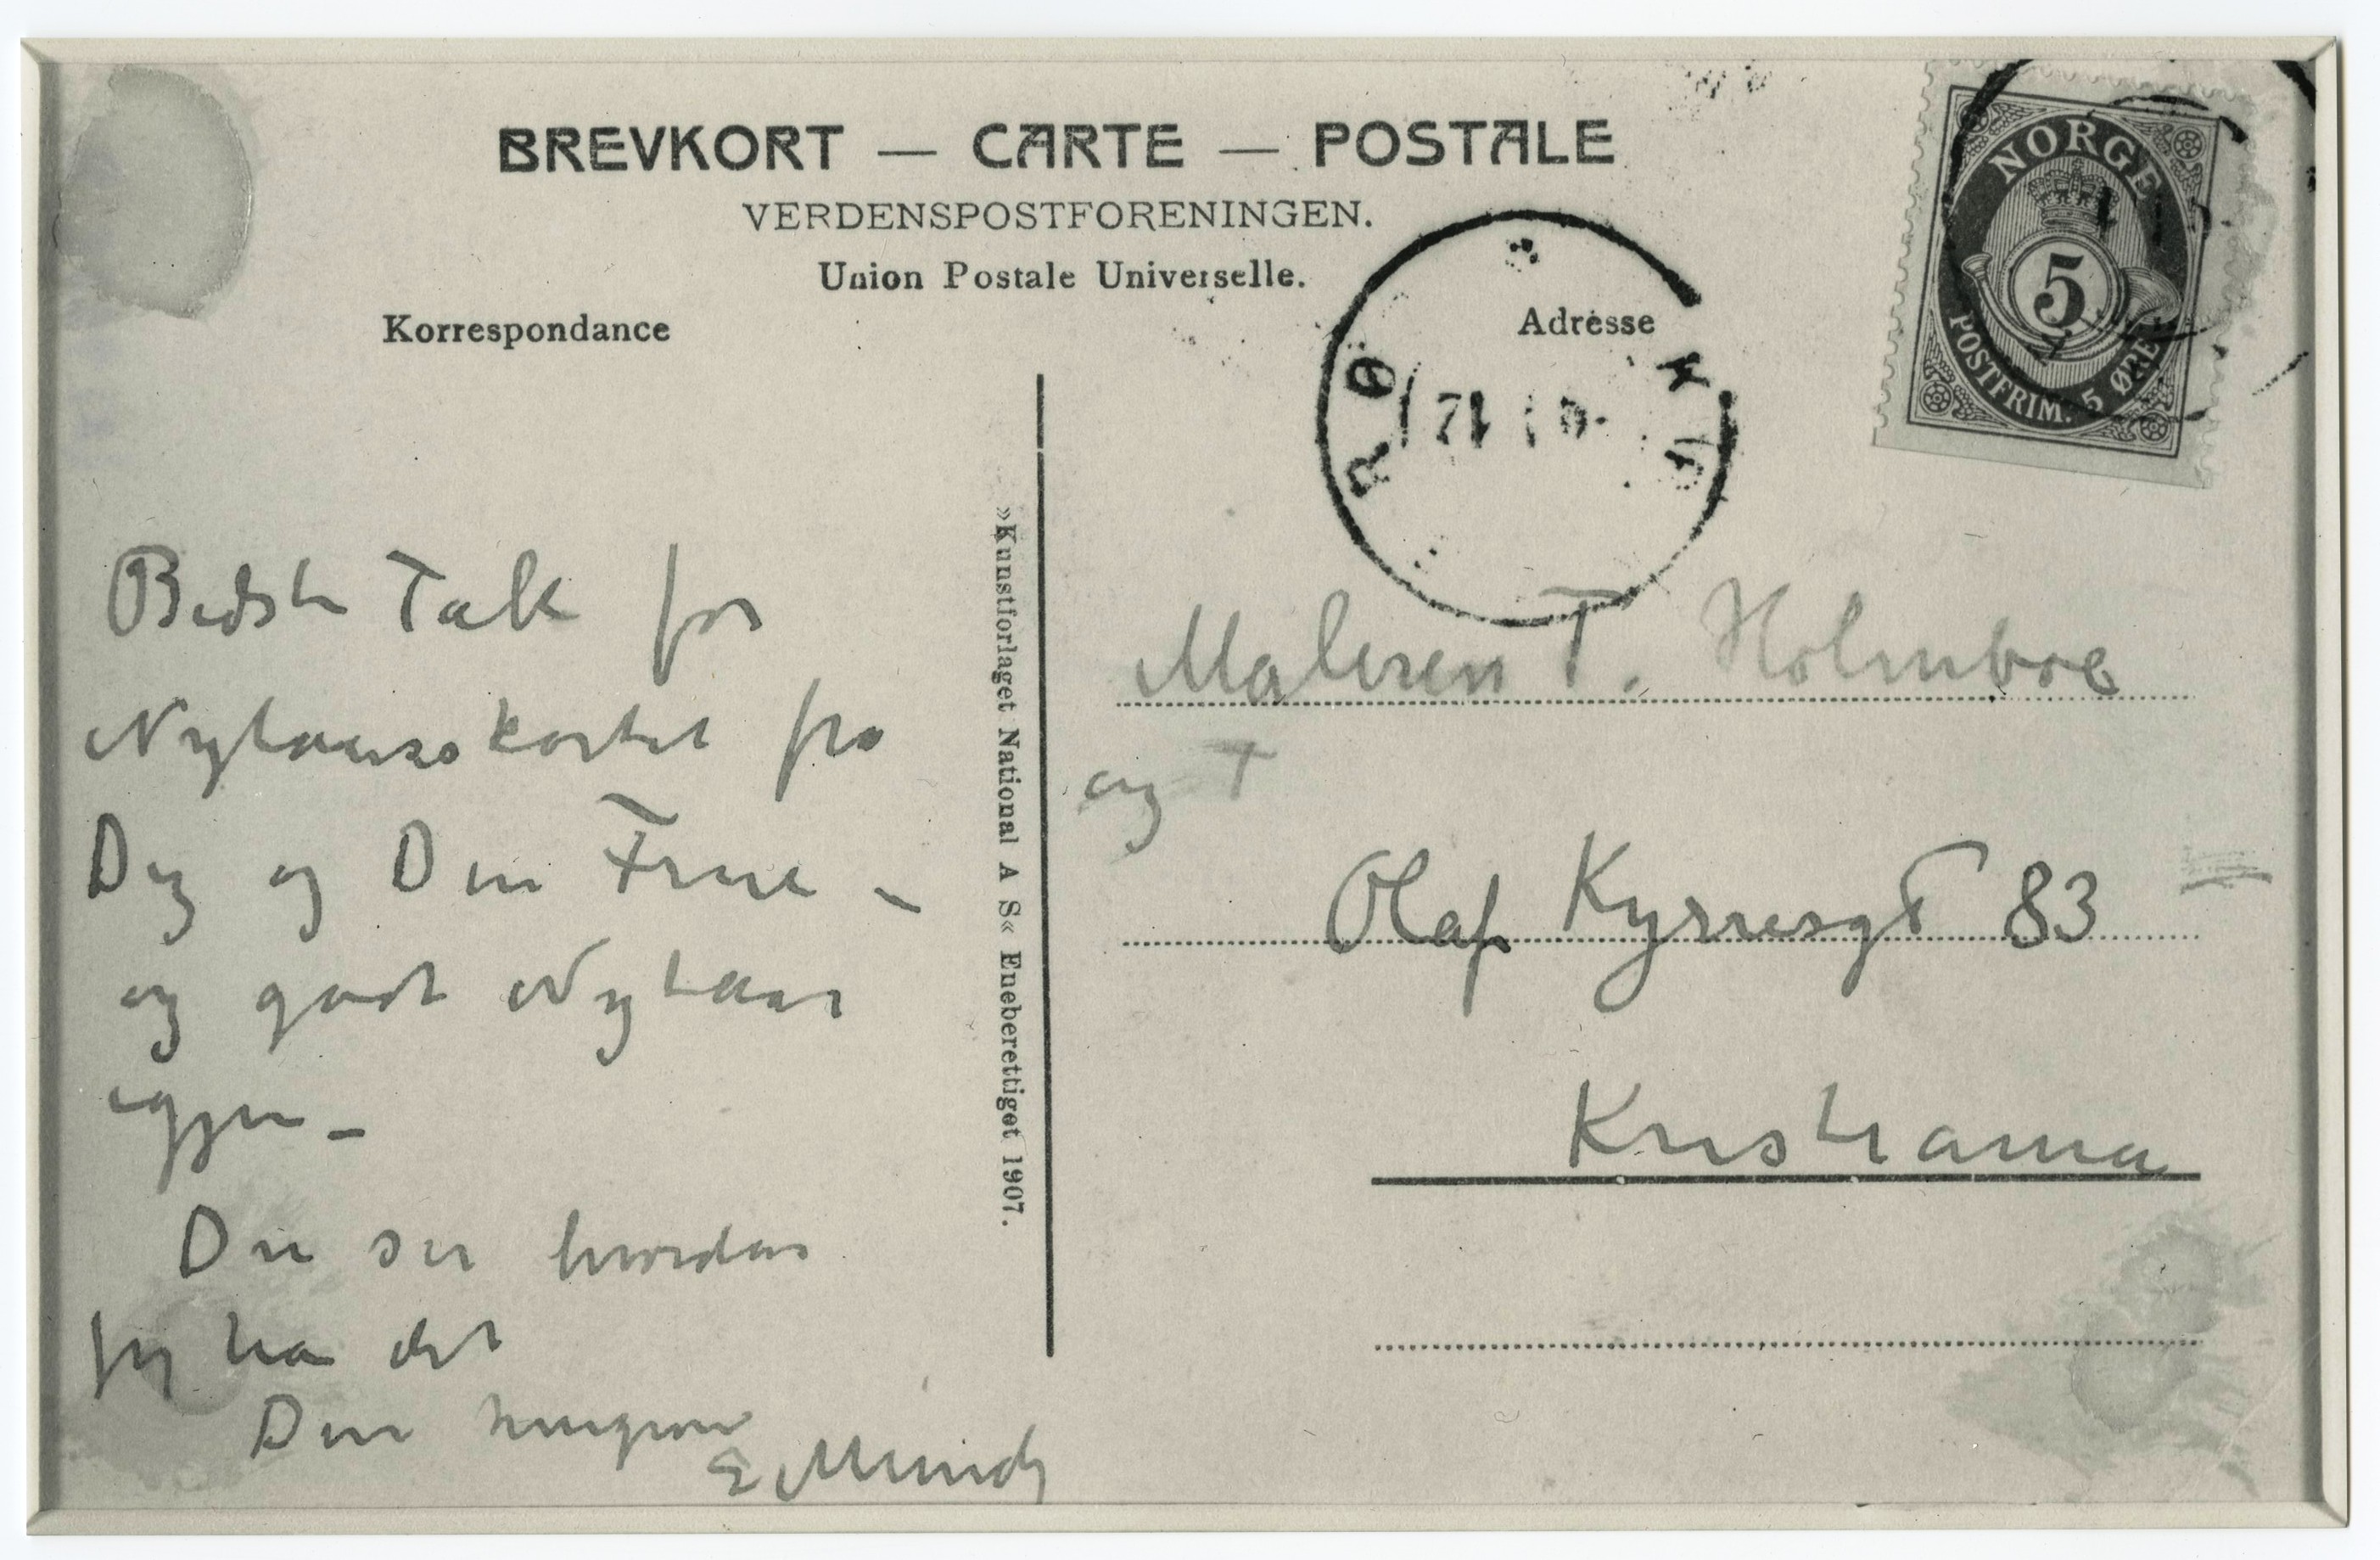 BREVKORT — CARTE — POSTALE
VERDENSPOSTFORENINGEN.
Union Postale Universelle.
Korrespondance
Adresse
NORGE
5
POSTFRIM. 5 ØRE
Bedste Tak for
Nytaarskortet fra
Dig og Din Frue –
og godt Nytaar
igjen –
Du ser hvordan
jeg har det
Din hengivne
E Munch
»Kunstforlaget National A S« Eneberettiget 1907.
Maleren T. Holmboe
og T
Olaf Kyrresgt 83
Kristiania